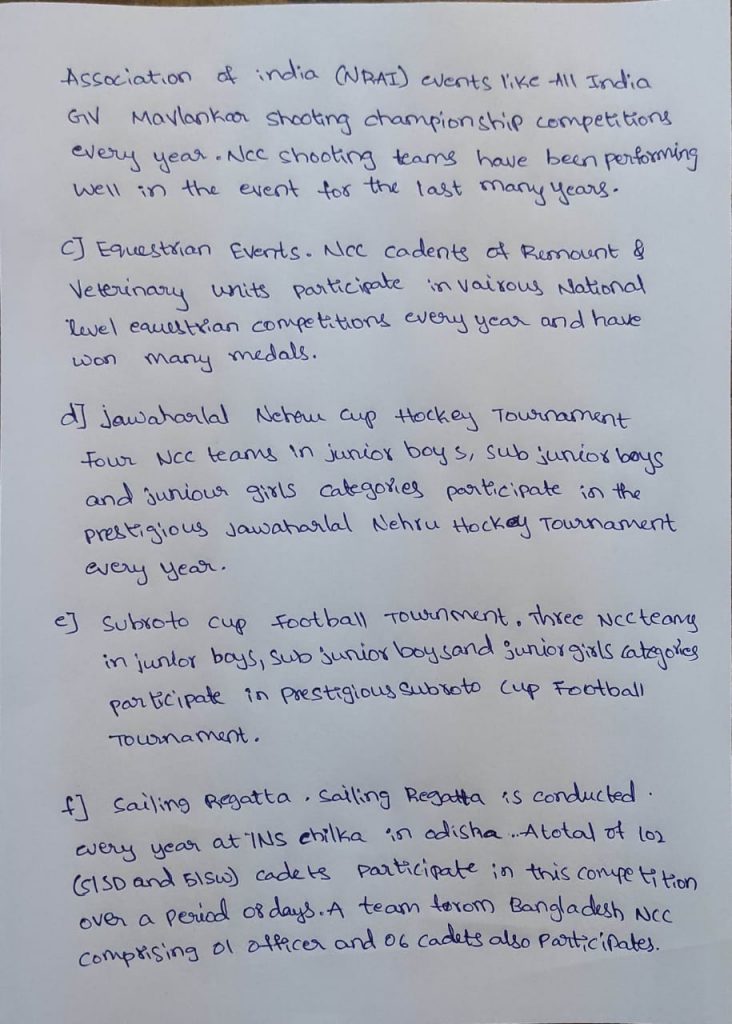 Association of india (NRAI) events like All India
GV Mavlankar shooting championship competitions
every year. Ncc shooting teams have been performing
well in the event for the last many years.
C] Equestrian Events. Ncc cadents of Remount &
Veterinary units participate in vairous National
level equestrian competitions every year and have
won many medals.
d] jawaharlal Nehru cup Hockey Tournament
Four Ncc teams in junior boys, sub junior boys
and juniour girls categories participate in the
prestigious Jawaharlal Nehru Hockey Tournament
every year.
e] Subroto cup Football Tournment. Three Ncc teams
in junior boys, sub junior boys and junior girls categories
participate in prestigious subroto cup Football
Tournament.
f] Sailing Regatta. Sailing Regatta is conducted.
every year at INS chilka in odisha.. A total of 102
(51SD and 51SW) cadets participate in this competition
over a period 08 days. A team forom Bangladesh NCC
comprising 01 officer and 06 cadets also participates.